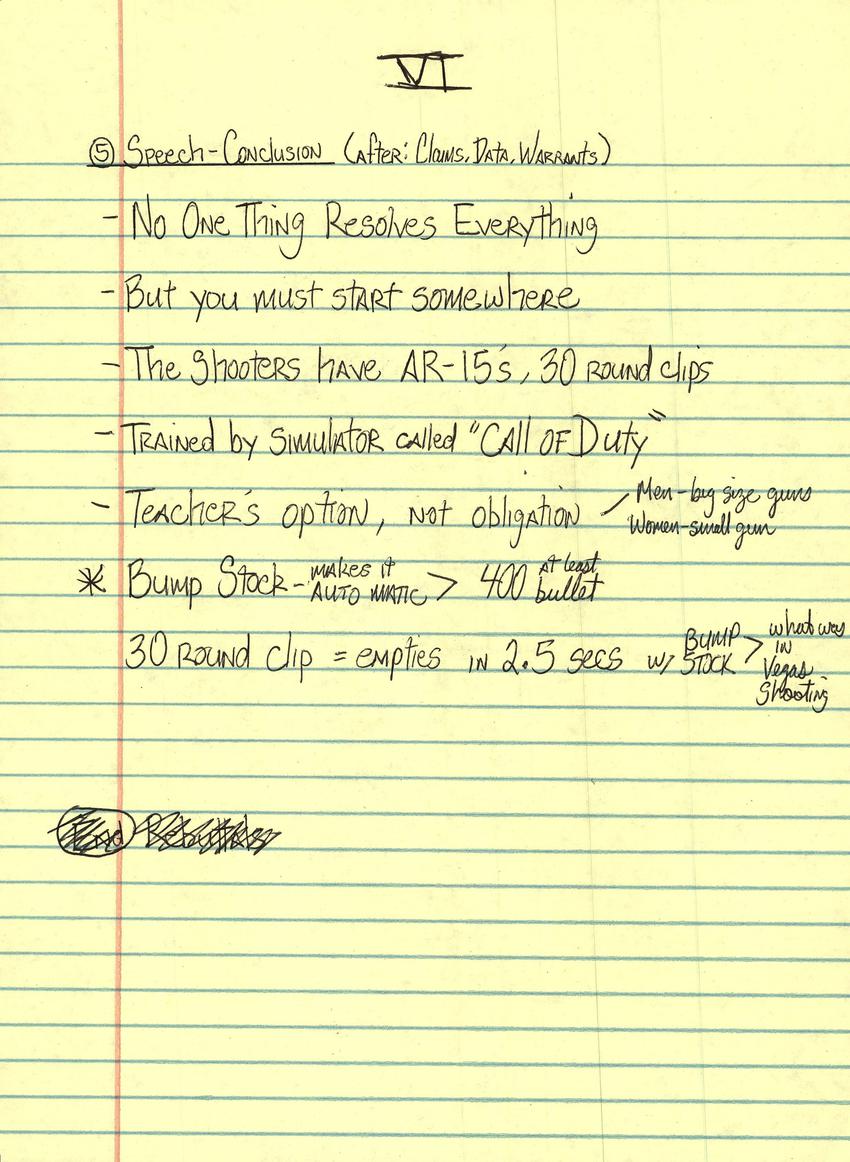 VI
⑤ Speech-Conclusion (After: Claims, Data, Warrants)
- No One Thing Resolves Everything
- But you must start somewhere
- The Shooters have AR-15's, 30 round clips
- Trained by simulator called "Call of Duty"
- Teacher's option, not obligation / Men-big size guns
Women-small gun
* Bump Stock - makes it automatic > 400 at least bullet
30 round clip = empties in 2.5 secs w/ Bump Stock > what was in Vegas Shooting